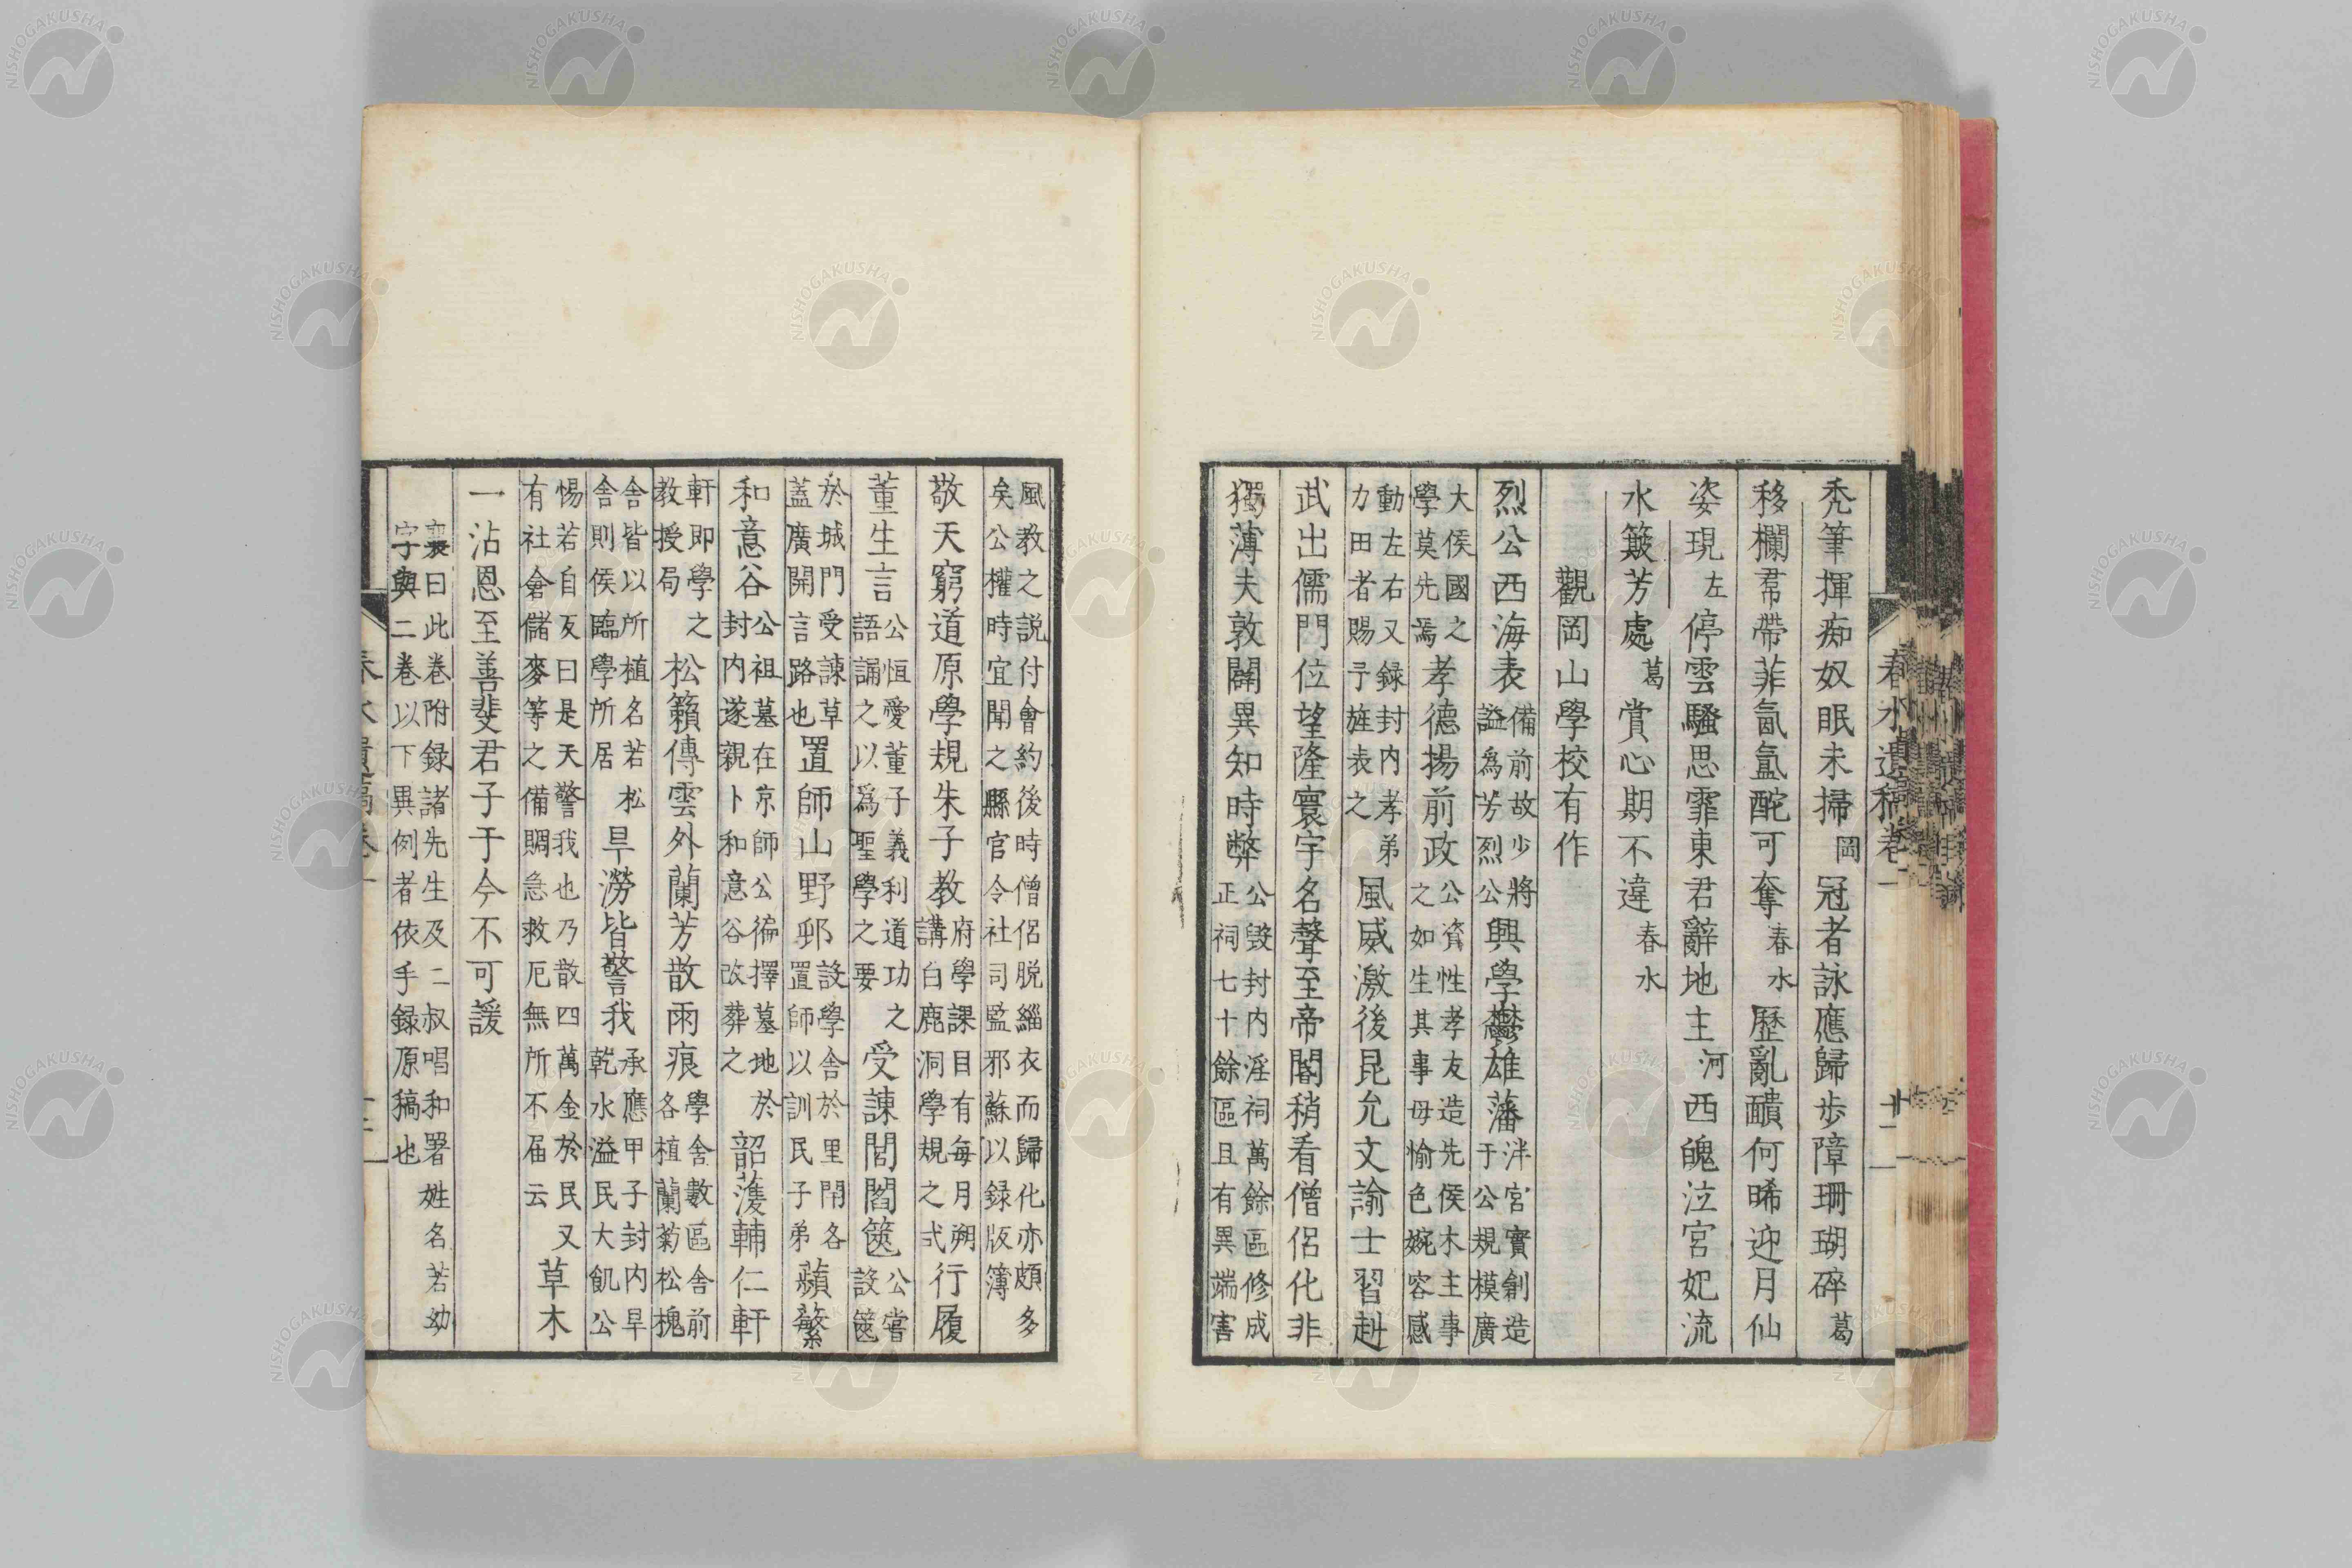 春水遺稿卷一
十二
禿筆揮痴奴眠未掃岡冠者詠應歸步障珊瑚碎葛
移欄君帶菲氤氳酡可奪春水歷亂靧何晞迎月仙
姿現左停雲騷思霏東君辭地主河西魄泣宮妃流
水簸芳處葛賞心期不違春水
觀岡山學校有作
烈公西海表備前故少將謚爲芳烈公興學鬱雄藩泮宮實創造于公規模廣
大侯國之學莫先焉孝德揚前政公資性孝友造先侯木主事之如生其事母愉色婉容感
動左右又録封內孝弟力田者賜予旌表之風威激後昆允文諭士習赳
武出儒門位望隆寰宇名聲至帝閽稍看僧侶化非
獨薄夫敦闢異知時弊公毀封內淫祠萬餘區修成正祠七十餘區且有異端害
風教之説付會約後時僧侶脱緇衣而歸化亦頗多矣公權時宜聞之縣官令社司監邪蘇以録版簿
敬天窮道原學規朱子教府學課目有每月朔講白鹿洞學規之式行履
董生言公恒愛董子義利道功之語誦之以爲聖學之要受諫閭閻篋公嘗設篋
於城門受諫草蓋廣開言路也置師山野邨設學舎於里閈各置師以訓民子弟蘋蘩
和意谷公祖墓在京師公徧擇墓地於封内遂親卜和意谷改葬之韶蒦輔仁軒
軒即學之教授局松籟傳雲外蘭芳散雨痕學舎數區舎前各植蘭菊松槐
舎皆以所植名若松舎則侯臨學所居旱澇皆警我承應甲子封内旱乾水溢民大飢公
惕若自反曰是天警我也乃散四萬金於民又有社倉儲麥等之備賙急救厄無所不届云草木
一沾恩至善斐君子于今不可諼
襄曰此卷附録諸先生及二叔唱和署姓名若幼字與二卷以下異例者依手録原稿也